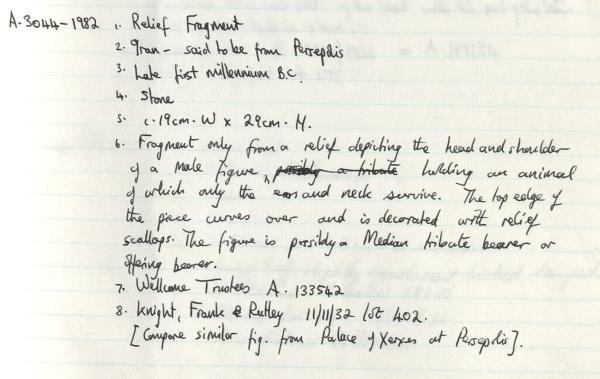 A.3044-1982 1. Relief Fragment
2. Iran - said to be from Persepolis
3. Late first millennium B.C.
4. Stone
5. c.19cm. W x 29cm. H.
6. Fragment only from a relief depicting the head and shoulder
of a male figure, possibly a tribute holding an animal
of which only the ears and neck survive. The top edge of
the piece curves over and is decorated with relief
scallops. The figure is possibly a Median tribute bearer or
offering bearer.
7. Wellcome Trustees A. 133542
8. Knight, Frank & Rutley 11/11/32 lot 402.
[Compare similar fig. from Palace of Xerxes at Persepolis].